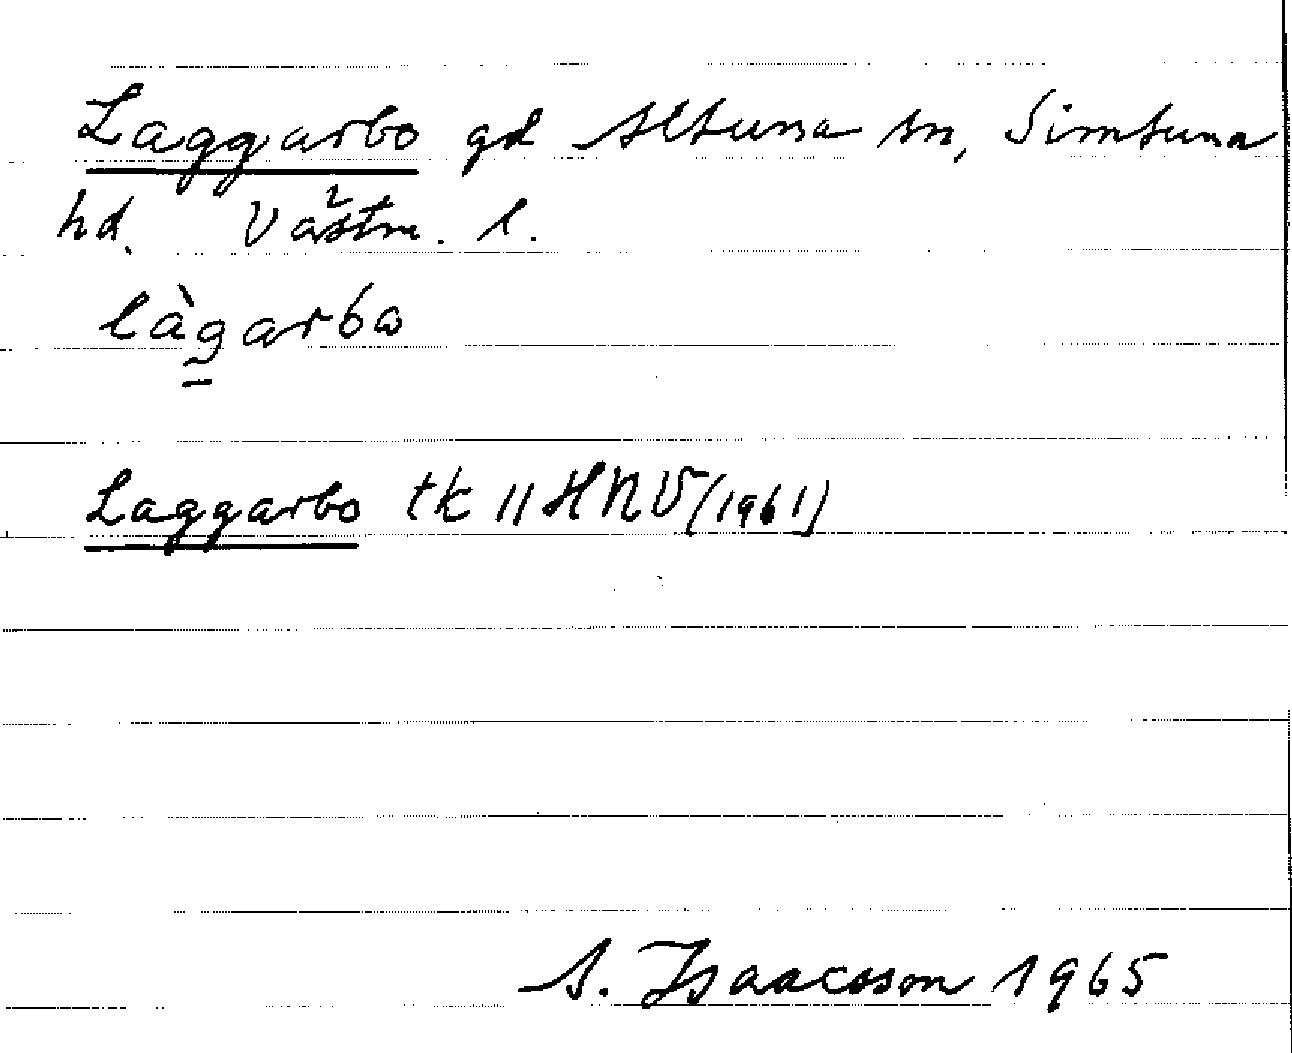 Laggarbo gd Altuna sn, Simtuna
hd. Västm. l.
làgarbo
Laggarbo tk 11HNV(1961)
A. Isaacsson 1965